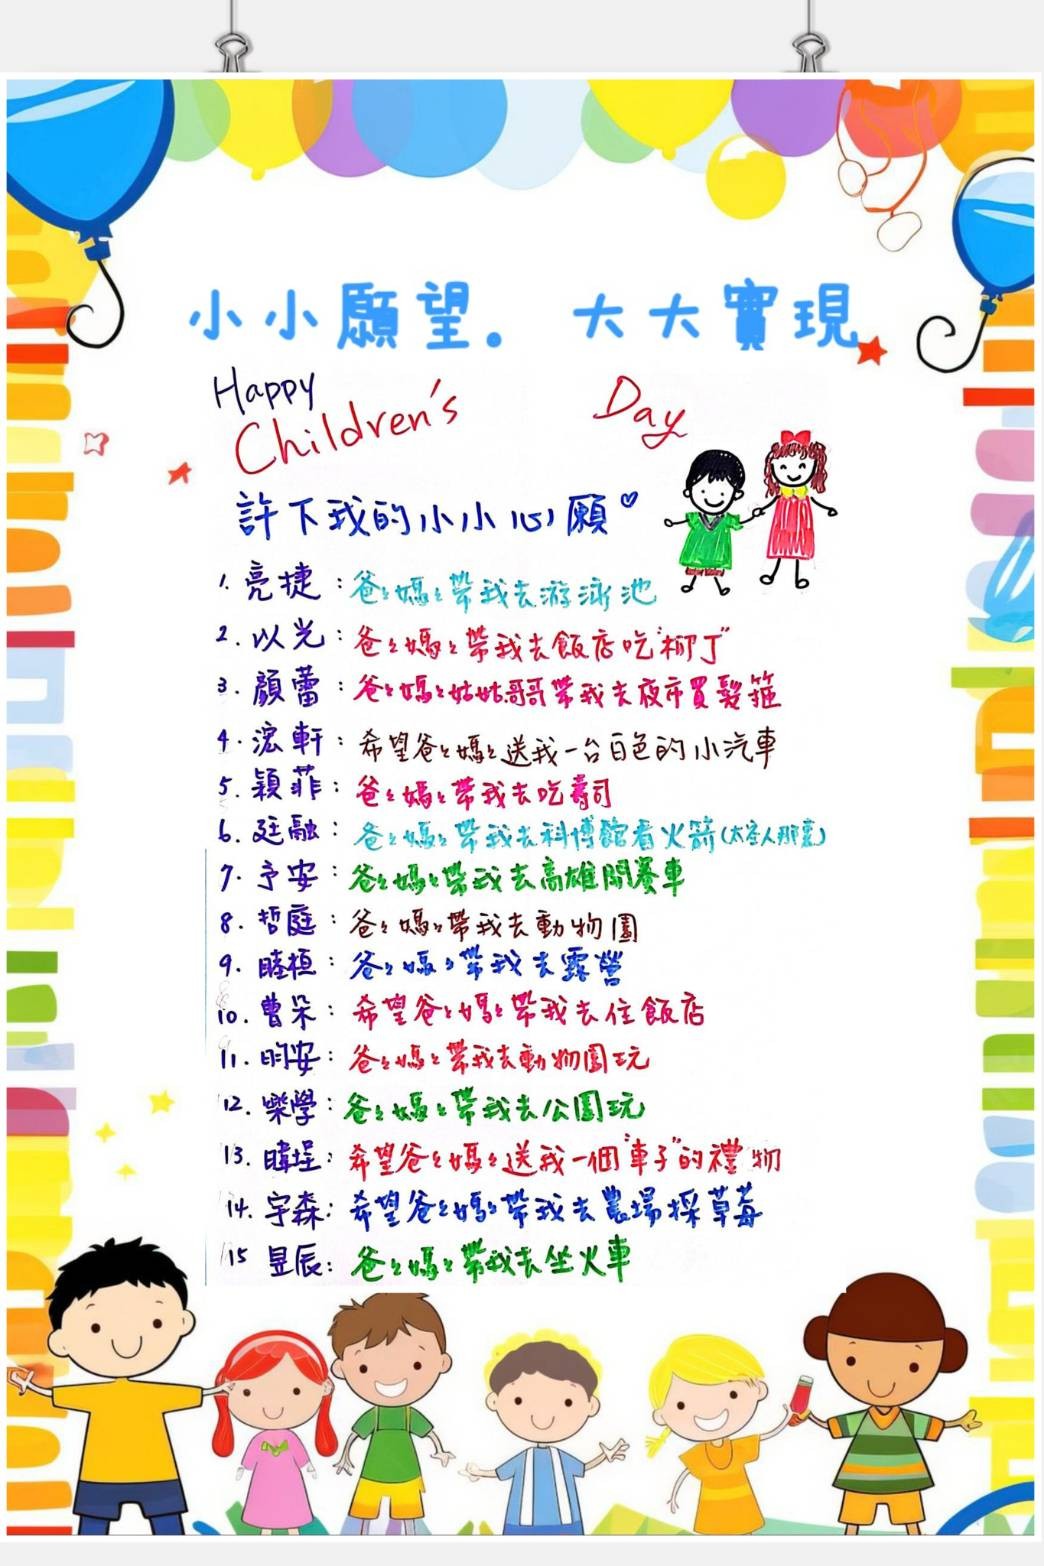 小小願望. 大大實現
Happy
Children's Day
許下我的小小心願♡
1. 亮捷：爸爸媽媽帶我去游泳池
2. 以光：爸爸媽媽帶我去飯店吃"柳丁"
3. 顏蕾：爸爸媽媽姑姑哥哥帶我去夜市買髮箍
4. 浤軒：希望爸爸媽媽送我一台白色的小汽車
5. 穎菲：爸爸媽媽帶我去吃壽司
6. 廷融：爸爸媽媽帶我去科博館看火箭(太空人那裏)
7. 予安：爸爸媽媽帶我去高雄開賽車
8. 哲庭：爸爸媽媽帶我去動物園
9. 睦桓：爸爸媽媽帶我去露營
10. 曹朵：希望爸爸媽媽帶我去住飯店
11. 昀安：爸爸媽媽帶我去動物園玩
12. 樂學：爸爸媽媽帶我去公園玩
13. 暐埕：希望爸爸媽媽送我一個"車子"的禮物
14. 宇森：希望爸爸媽媽帶我去農場採草莓
15 昱辰：爸爸媽媽帶我去坐火車